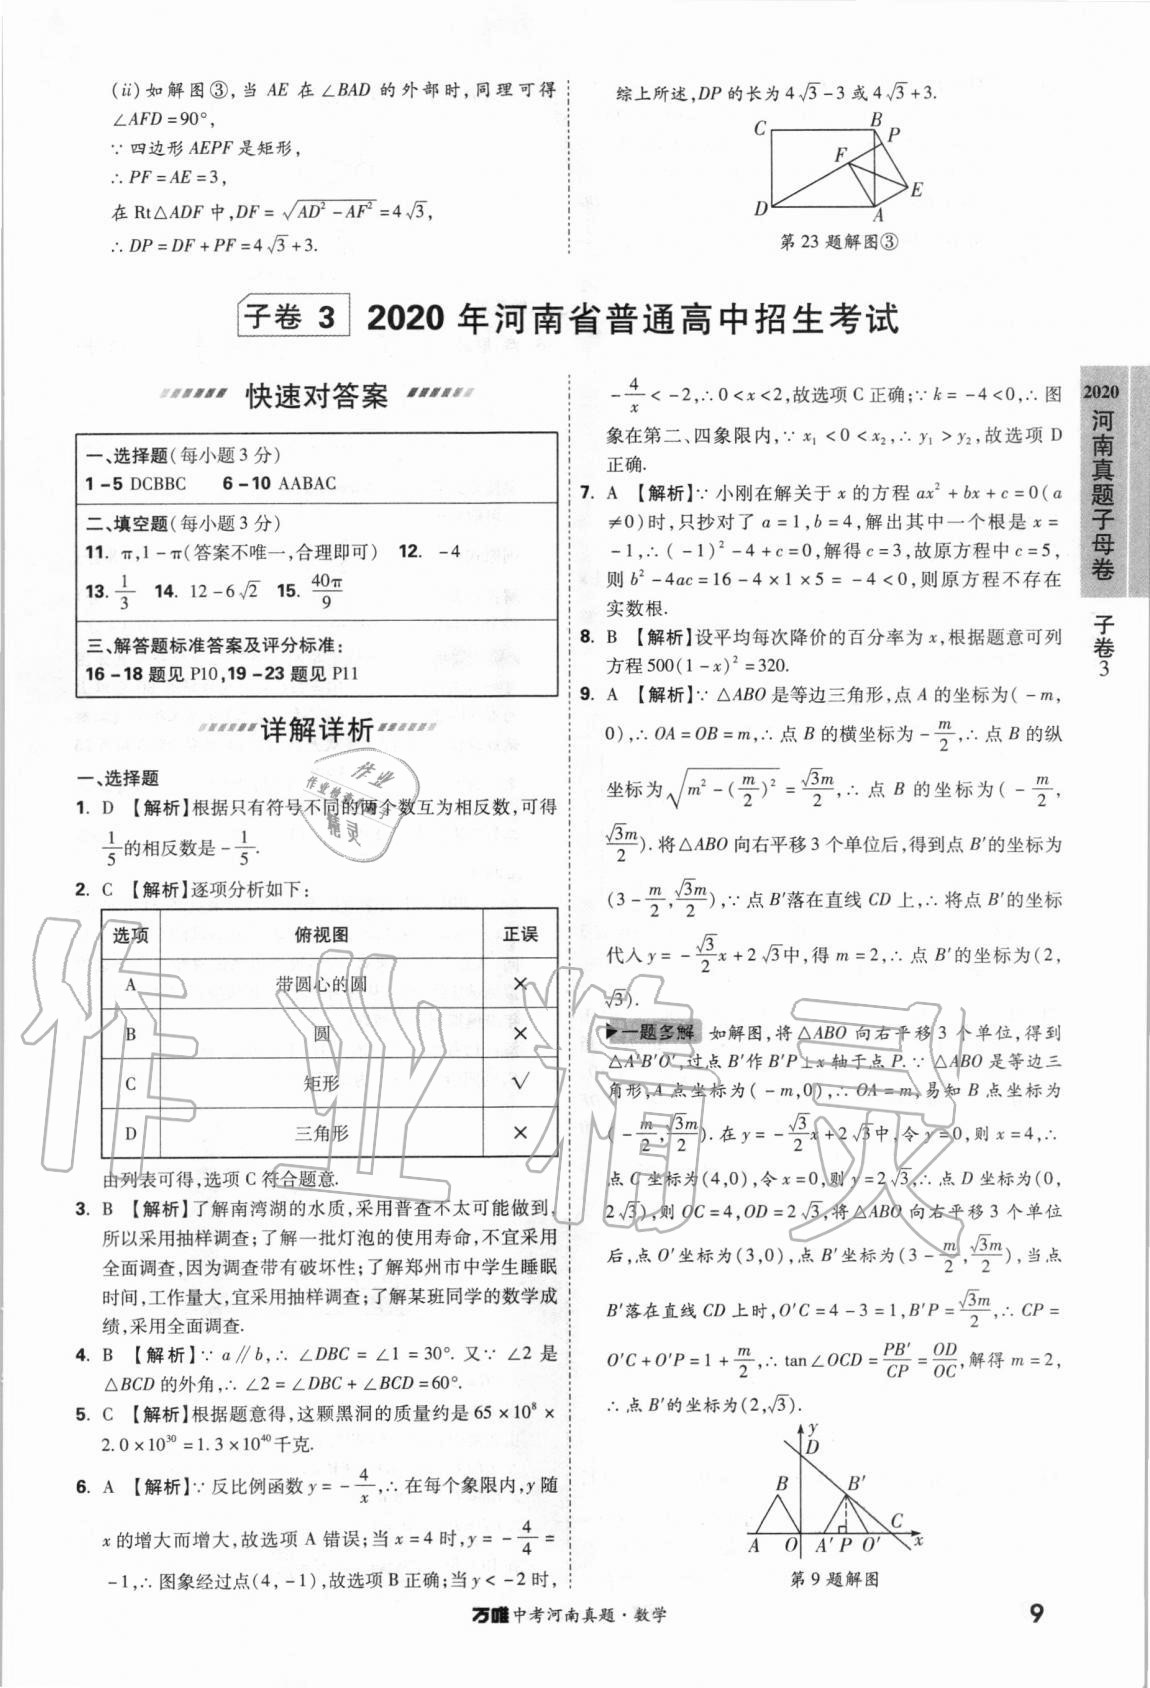 (ⅱ)如解图③,当 AE 在∠BAD 的外部时,同理可得
∠AFD=90°,
∵四边形 AEPF 是矩形,
∴PF=AE=3,
在 Rt△ADF 中,DF=√(AD²-AF²)=4√3,
∴DP=DF+PF=4√3+3.
综上所述,DP 的长为 4√3-3 或 4√3+3.
C B P F E D A
第 23 题解图③
子卷 3 2020 年河南省普通高中招生考试
快速对答案
一、选择题(每小题 3 分)
1-5 DCBBC 6-10 AABAC
二、填空题(每小题 3 分)
11. π,1-π(答案不唯一,合理即可) 12. -4
13. 1/3 14. 12-6√2 15. 40π/9
三、解答题标准答案及评分标准:
16-18 题见 P10,19-23 题见 P11
详解详析
一、选择题
1. D 【解析】根据只有符号不同的两个数互为相反数,可得
1/5的相反数是-1/5.
2. C 【解析】逐项分析如下:
选项 俯视图 正误
A 带圆心的圆 ×
B 圆 ×
C 矩形 √
D 三角形 ×
由列表可得,选项 C 符合题意.
3. B 【解析】了解南湾湖的水质,采用普查不太可能做到,
所以采用抽样调查;了解一批灯泡的使用寿命,不宜采用
全面调查,因为调查带有破坏性;了解郑州市中学生睡眠
时间,工作量大,宜采用抽样调查;了解某班同学的数学成
绩,采用全面调查.
4. B 【解析】∵a∥b,∴∠DBC=∠1=30°. 又∵∠2 是
△BCD 的外角,∴∠2=∠DBC+∠BCD=60°.
5. C 【解析】根据题意得,这颗黑洞的质量约是 65×10⁸×
2.0×10³⁰=1.3×10⁴⁰千克.
6. A 【解析】∵反比例函数 y=-4/x,∴在每个象限内,y 随
x 的增大而增大,故选项 A 错误;当 x=4 时,y=-4/4=
-1,∴图象经过点(4,-1),故选项 B 正确;当 y<-2 时,
-4/x<-2,∴0<x<2,故选项 C 正确;∵k=-4<0,∴图
象在第二、四象限内,∵x₁<0<x₂,∴y₁>y₂,故选项 D
正确.
7. A 【解析】∵小刚在解关于 x 的方程 ax²+bx+c=0(a
≠0)时,只抄对了 a=1,b=4,解出其中一个根是 x=
-1,∴(-1)²-4+c=0,解得 c=3,故原方程中 c=5,
则 b²-4ac=16-4×1×5=-4<0,则原方程不存在
实数根.
8. B 【解析】设平均每次降价的百分率为 x,根据题意可列
方程 500(1-x)²=320.
9. A 【解析】∵△ABO 是等边三角形,点 A 的坐标为(-m,
0),∴OA=OB=m,∴点 B 的横坐标为-m/2,∴点 B 的纵
坐标为√(m²-(m/2)²)=√3m/2,∴点 B 的坐标为(-m/2,
√3m/2).将△ABO 向右平移 3 个单位后,得到点 B′的坐标为
(3-m/2,√3m/2),∵点 B′落在直线 CD 上,∴将点 B′的坐标
代入 y=-√3/2x+2√3中,得 m=2,∴点 B′的坐标为(2,
√3).
▶一题多解 如解图,将△ABO 向右平移 3 个单位,得到
△A′B′O′,过点 B′作 B′P⊥x 轴于点 P.∵△ABO 是等边三
角形,A 点坐标为(-m,0),∴OA=m,易知 B 点坐标为
(-m/2,√3m/2).在 y=-√3/2x+2√3中,令 y=0,则 x=4,∴
点 C 坐标为(4,0),令 x=0,则 y=2√3,∴点 D 坐标为(0,
2√3),则 OC=4,OD=2√3,将△ABO 向右平移 3 个单位
后,点 O′坐标为(3,0),点 B′坐标为(3-m/2,√3m/2),当点
B′落在直线 CD 上时,O′C=4-3=1,B′P=√3m/2,∴CP=
O′C+O′P=1+m/2,∴tan∠OCD=PB′/CP=OD/OC,解得 m=2,
∴点 B′的坐标为(2,√3).
y D B B′ C A O A′ P O′ x
第 9 题解图
2020 河南真题子母卷 子卷 3
万唯中考河南真题·数学
9
作业
作业精灵